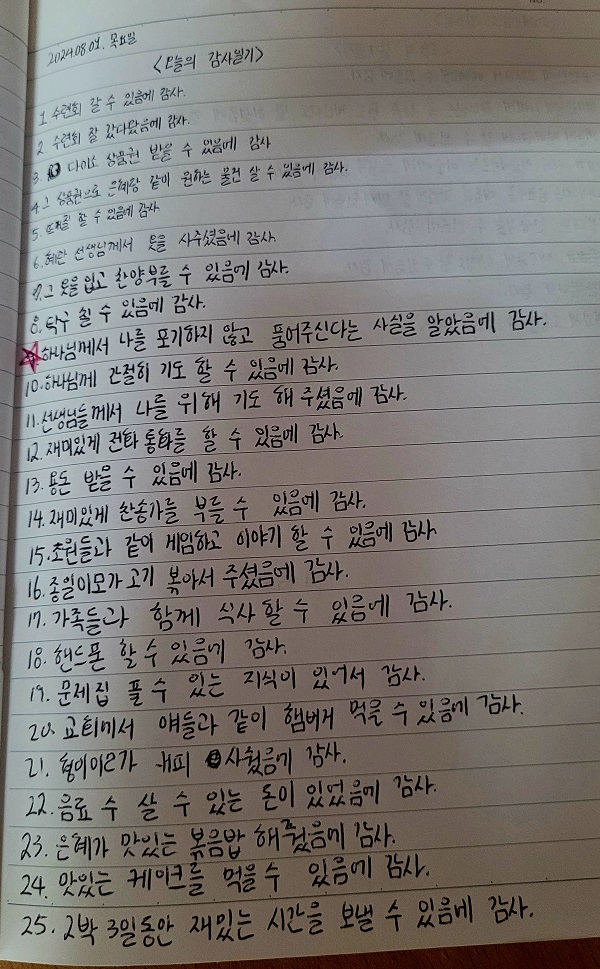 2024.08.01. 목요일
<오늘의 감사일기>
1. 수련회 갈 수 있음에 감사.
2. 수련회 잘 갔다왔음에 감사.
3. 다이소 상품권 받을 수 있음에 감사
4. 그 상품권으로 은혜랑 같이 원하는 물건 살 수 있음에 감사.
5. 할 수 있음에 감사
6. 혜란 선생님께서 옷을 사주셨음에 감사.
7. 그 옷을 입고 찬양부를 수 있음에 감사.
8. 탁구 칠 수 있음에 감사.
하나님께서 나를 포기하지 않고 품어주신다는 사실을 알았음에 감사.
10. 하나님께 간절히 기도 할 수 있음에 감사.
11. 선생님들께서 나를 위해 기도 해 주셨음에 감사.
12. 재미있게 전화 통화를 할 수 있음에 감사.
13. 용돈 받을 수 있음에 감사.
14. 재미있게 찬송가를 부를 수 있음에 감사.
15. 초원들과 같이 게임하고 이야기 할 수 있음에 감사
16. 종일이모가 고기 볶아서 주셨음에 감사.
17. 가족들과 함께 식사 할 수 있음에 감사.
18. 핸드폰 할 수 있음에 감사.
19. 문제집 풀 수 있는 지식이 있어서 감사.
20. 교티에서 얘들과 같이 햄버거 먹을 수 있음에 감사.
21. 사줬음에 감사.
22. 음료 수 살 수 있는 돈이 있었음에 감사.
23. 은혜가 맛있는 볶음밥 해줬음에 감사.
24. 맛있는 케이크를 먹을 수 있음에 감사.
25. 2박 3일동안 재밌는 시간을 보낼 수 있음에 감사.